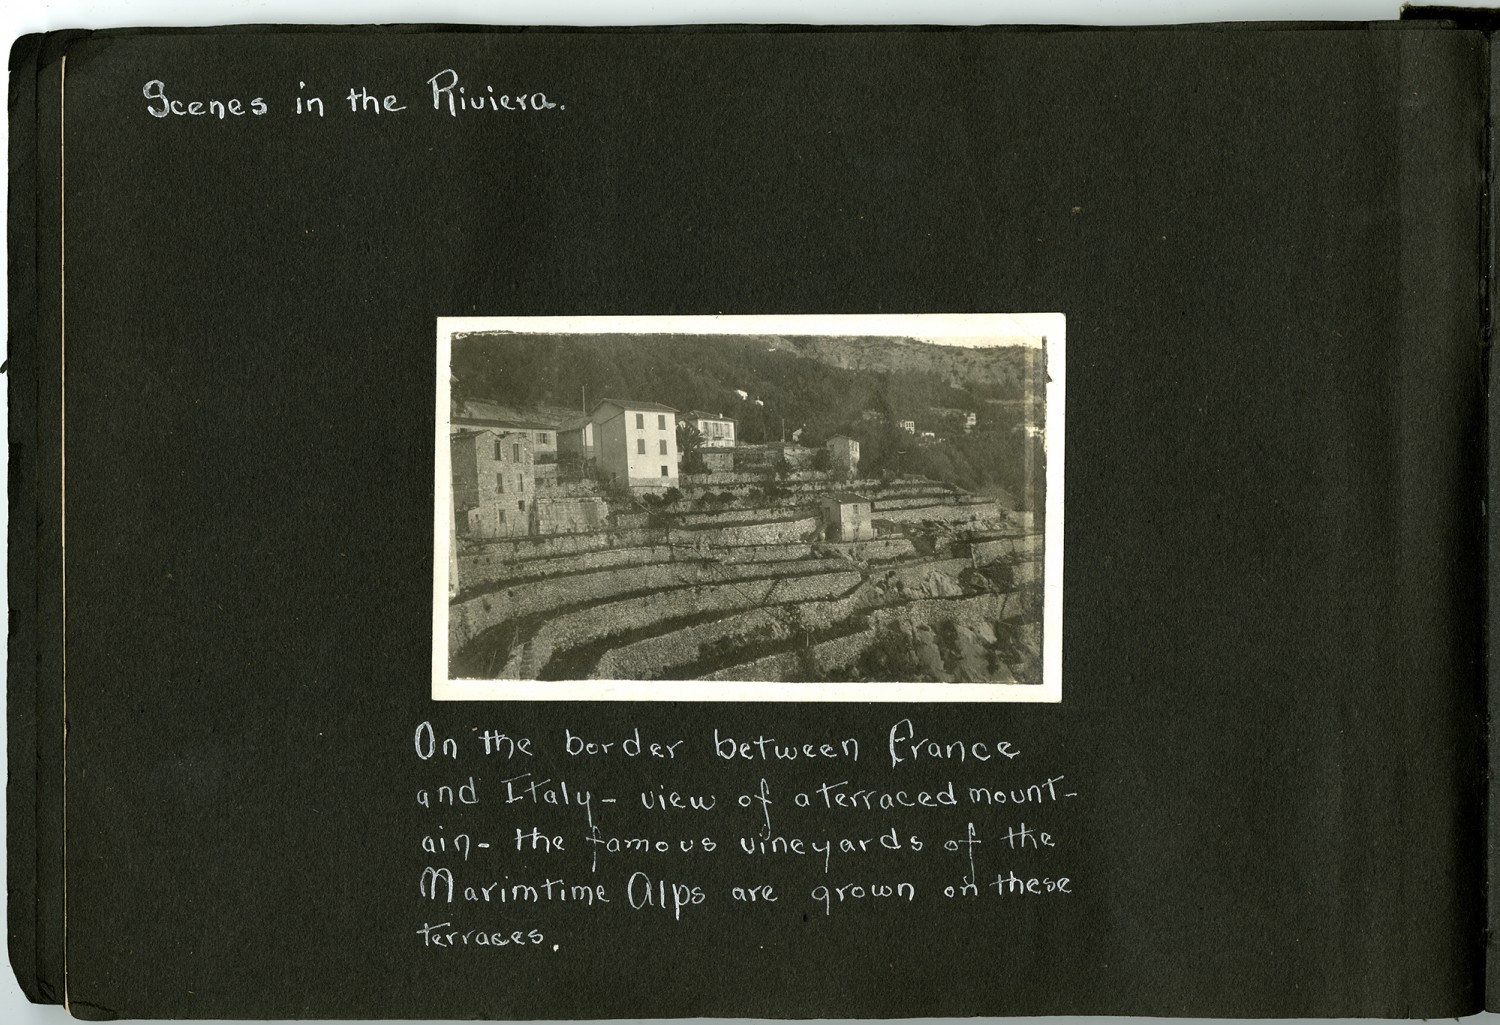 Scenes in the Riviera.
On the border between France
and Italy - view of a terraced mount-
ain - the famous vineyards of the
Marimtime Alps are grown on these
terraces.